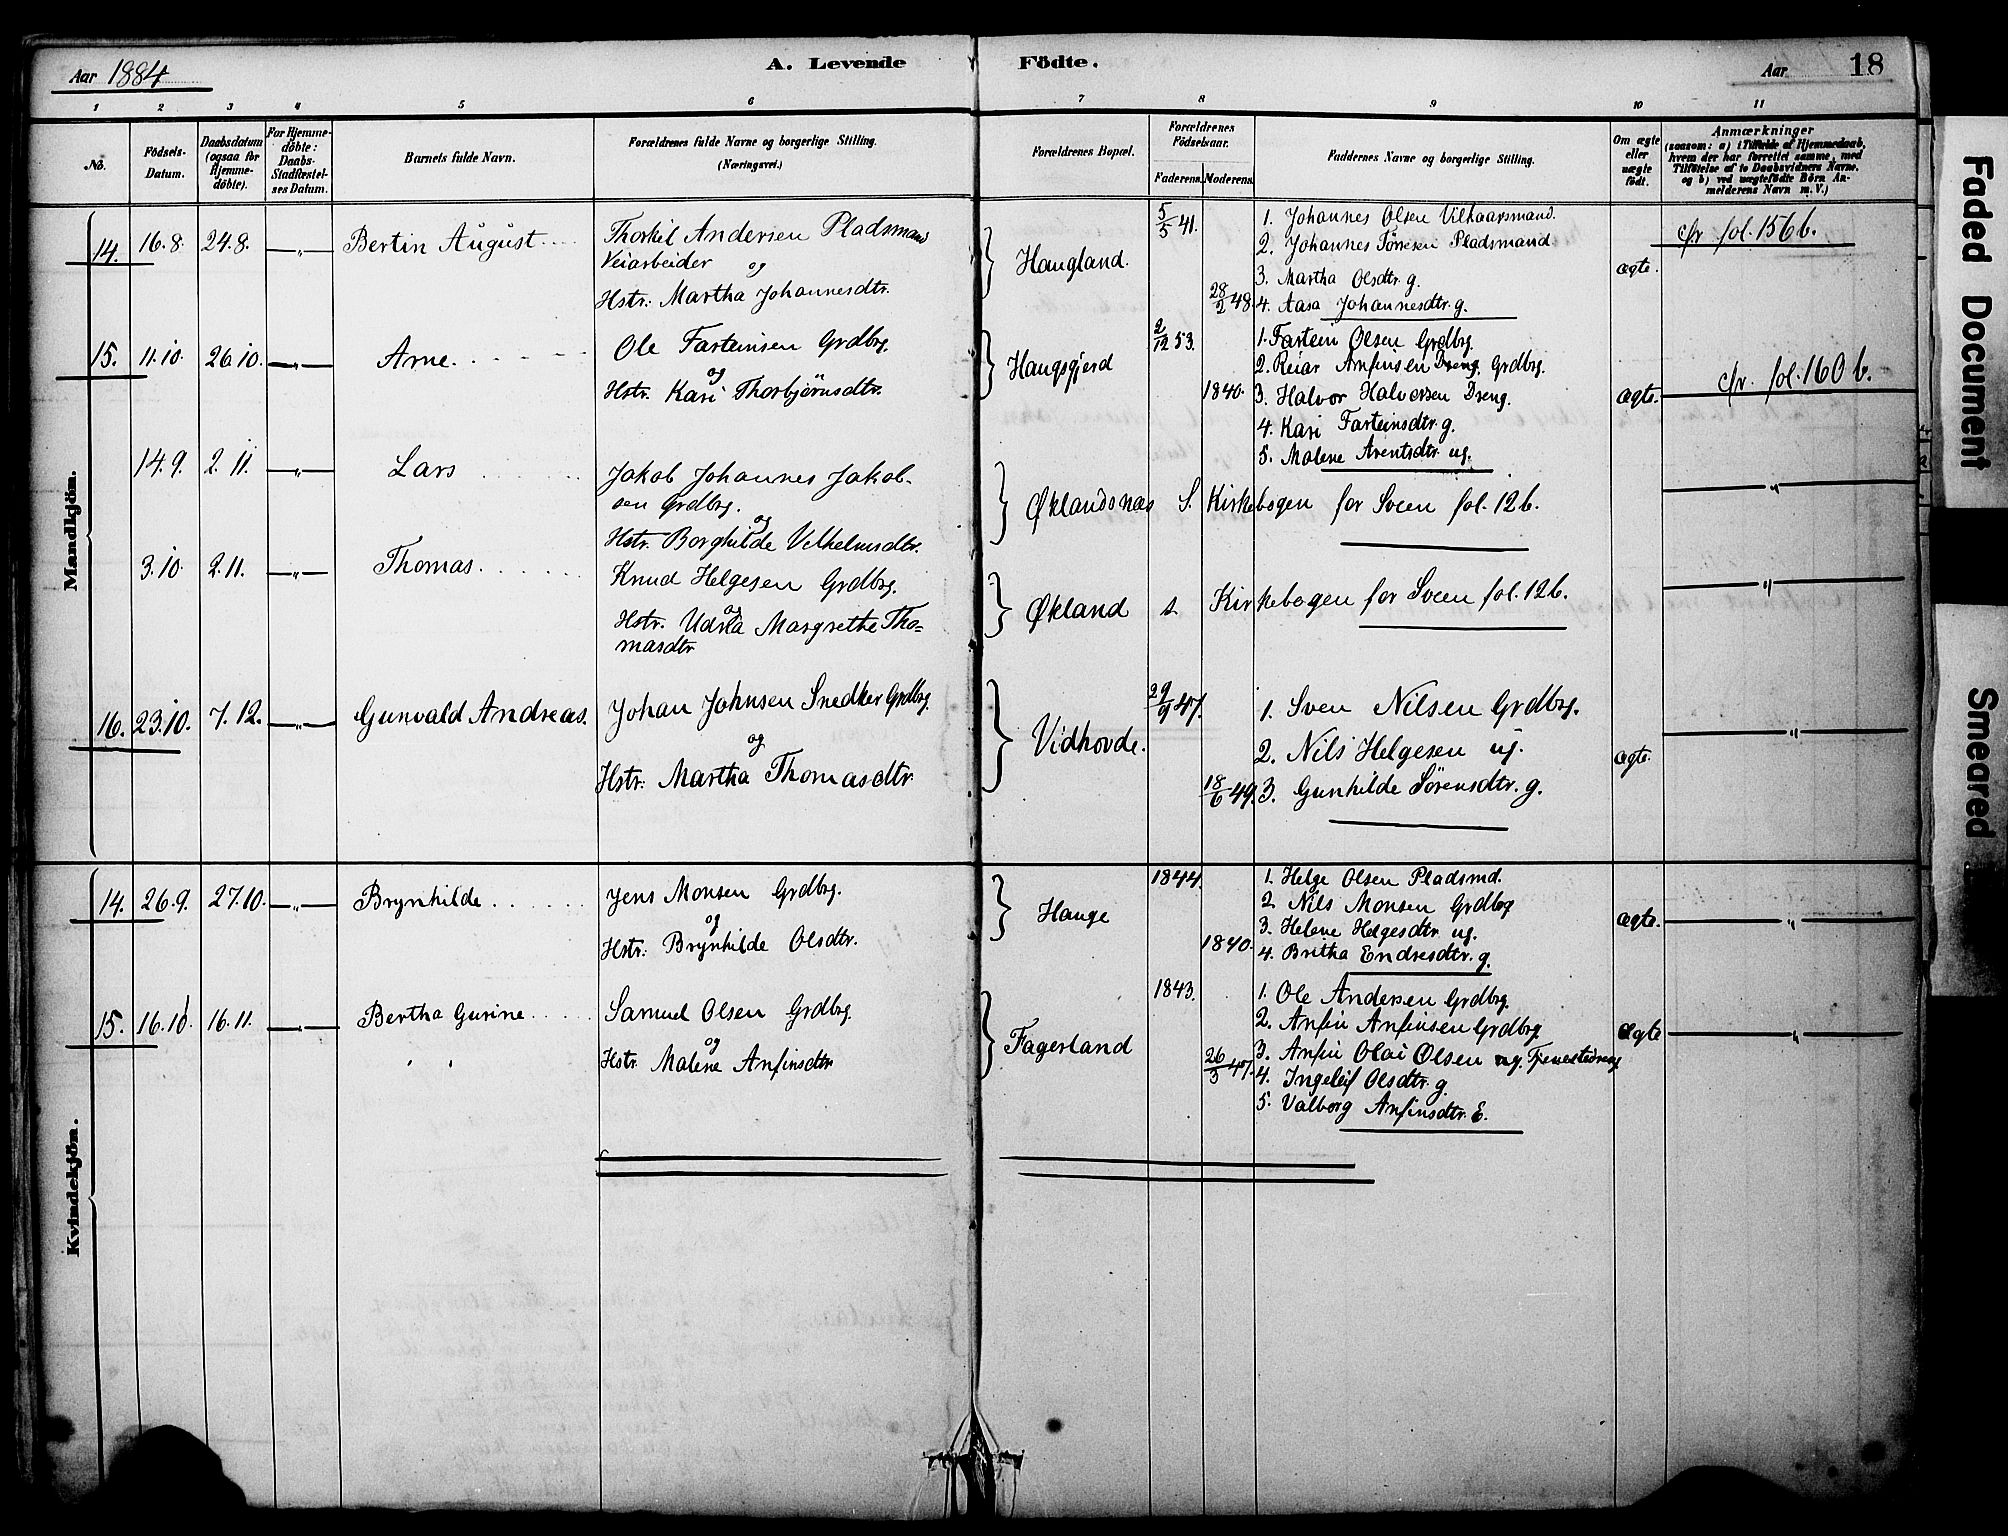 Aar 1884
A. Levende Födte.
Aar 18
1 2 3 4 5 6 7 8 9 10 11
No.
Födsels-Datum.
Daabsdatum (ogsaa for Hjemme-döbte).
For Hjemme-döbte: Daabs-Stadfæstel-ses Datum.
Barnets fulde Navn.
Forældrenes fulde Navne og borgerlige Stilling. (Næringsvei.)
Forældrenes Bopæl.
Forældrenes Födselsaar.
Faderens. Moderens.
Faddernes Navne og borgerlige Stilling.
Om ægte eller uægte födt.
Anmærkninger
(saasom: a) i Tilfælde af Hjemmedaab,
hvem der har forrettet samme, med
Tilföielse af to Daabsvidners Navne.
og b) ved uægtefödte Börn An-
melderens Navn m. V.)
Mandkjön.
14. 16.8. 24.8. „ Bertin August
Thorkil Andersen Pladsmand
Veiarbeider
og
Hstr: Martha Johannesdtr.
Haugland.
5/5 41.
28/2 48.
1. Johannes Olsen Vilkaarsmand.
2. Johannes Tørresen Pladsmand
3. Martha Olsdtr. g.
4. Aasa Johannesdtr. g.
ægte.
cfr fol. 156 b.
15. 11.10. 26.10. „ Arne.
Ole Farteinsen Grdbrg.
og
Hstr. Kari Thorbjörnsdtr.
Haugsgjerd
2/12 53.
1840.
1. Fartein Olsen Grdbrg.
2. Reiar Anfinsen Dreng. Grdbrg.
3. Halvor Halvorsen Dreng.
4. Kari Farteinsdtr. g.
5. Malene Arentsdtr. ug.
ægte.
cfr. fol. 160 b.
14.9. 2.11. „ Lars
Jakob Johannes Jakob-
sen Grdbrg.
og
Hstr. Borghilde Vilhelmsdtr.
Øklandsnæs S. Kirkebogen for Sveen fol. 12 b.
„
3.10. 2.11. „ Thomas.
Knud Helgesen Grdbrg.
og
Hstr. Udnia Margrethe Tho=
masdtr
Økland s. Kirkebogen for Sveen fol. 12 b.
„
16. 23.10. 7.12. „ Gunvald Andreas.
Johan Johnsen Snedker Grdbrg.
og
Hstr: Martha Thomasdtr.
Vidhovde.
29/9 47.
18/6 49.
1. Sven Nilsen Grdbrg.
2. Nils Helgesen ug.
3. Gunhilde Sørensdtr. g.
ægte.
„
Kvindekjön.
14. 26.9. 27.10. „ Brynhilde
Jens Monsen Grdbrg.
og
Hstr: Brynhilde Olsdtr.
Hauge
1844.
1840.
1. Helge Olsen Pladsmd.
2 Nils Monsen Grdbrg
3. Helene Helgesdtr ug.
4. Britha Endresdtr. g.
ægte.
„
15. 16.10. 16.11. „ Bertha Gurine
Samuel Olsen Grdbrg.
og
Hstr. Malene Anfinsdtr
Fagerland
1843.
26/3 47.
1. Ole Andersen Grdbrg.
2. Anfin Anfinsen Grdbrg.
3. Anfin Olai Olsen ug. Tjenestedreng
4. Ingeleif Olsdtr. g.
5. Valborg Anfinsdtr. E.
ægte
„
Faded Document
Smeared